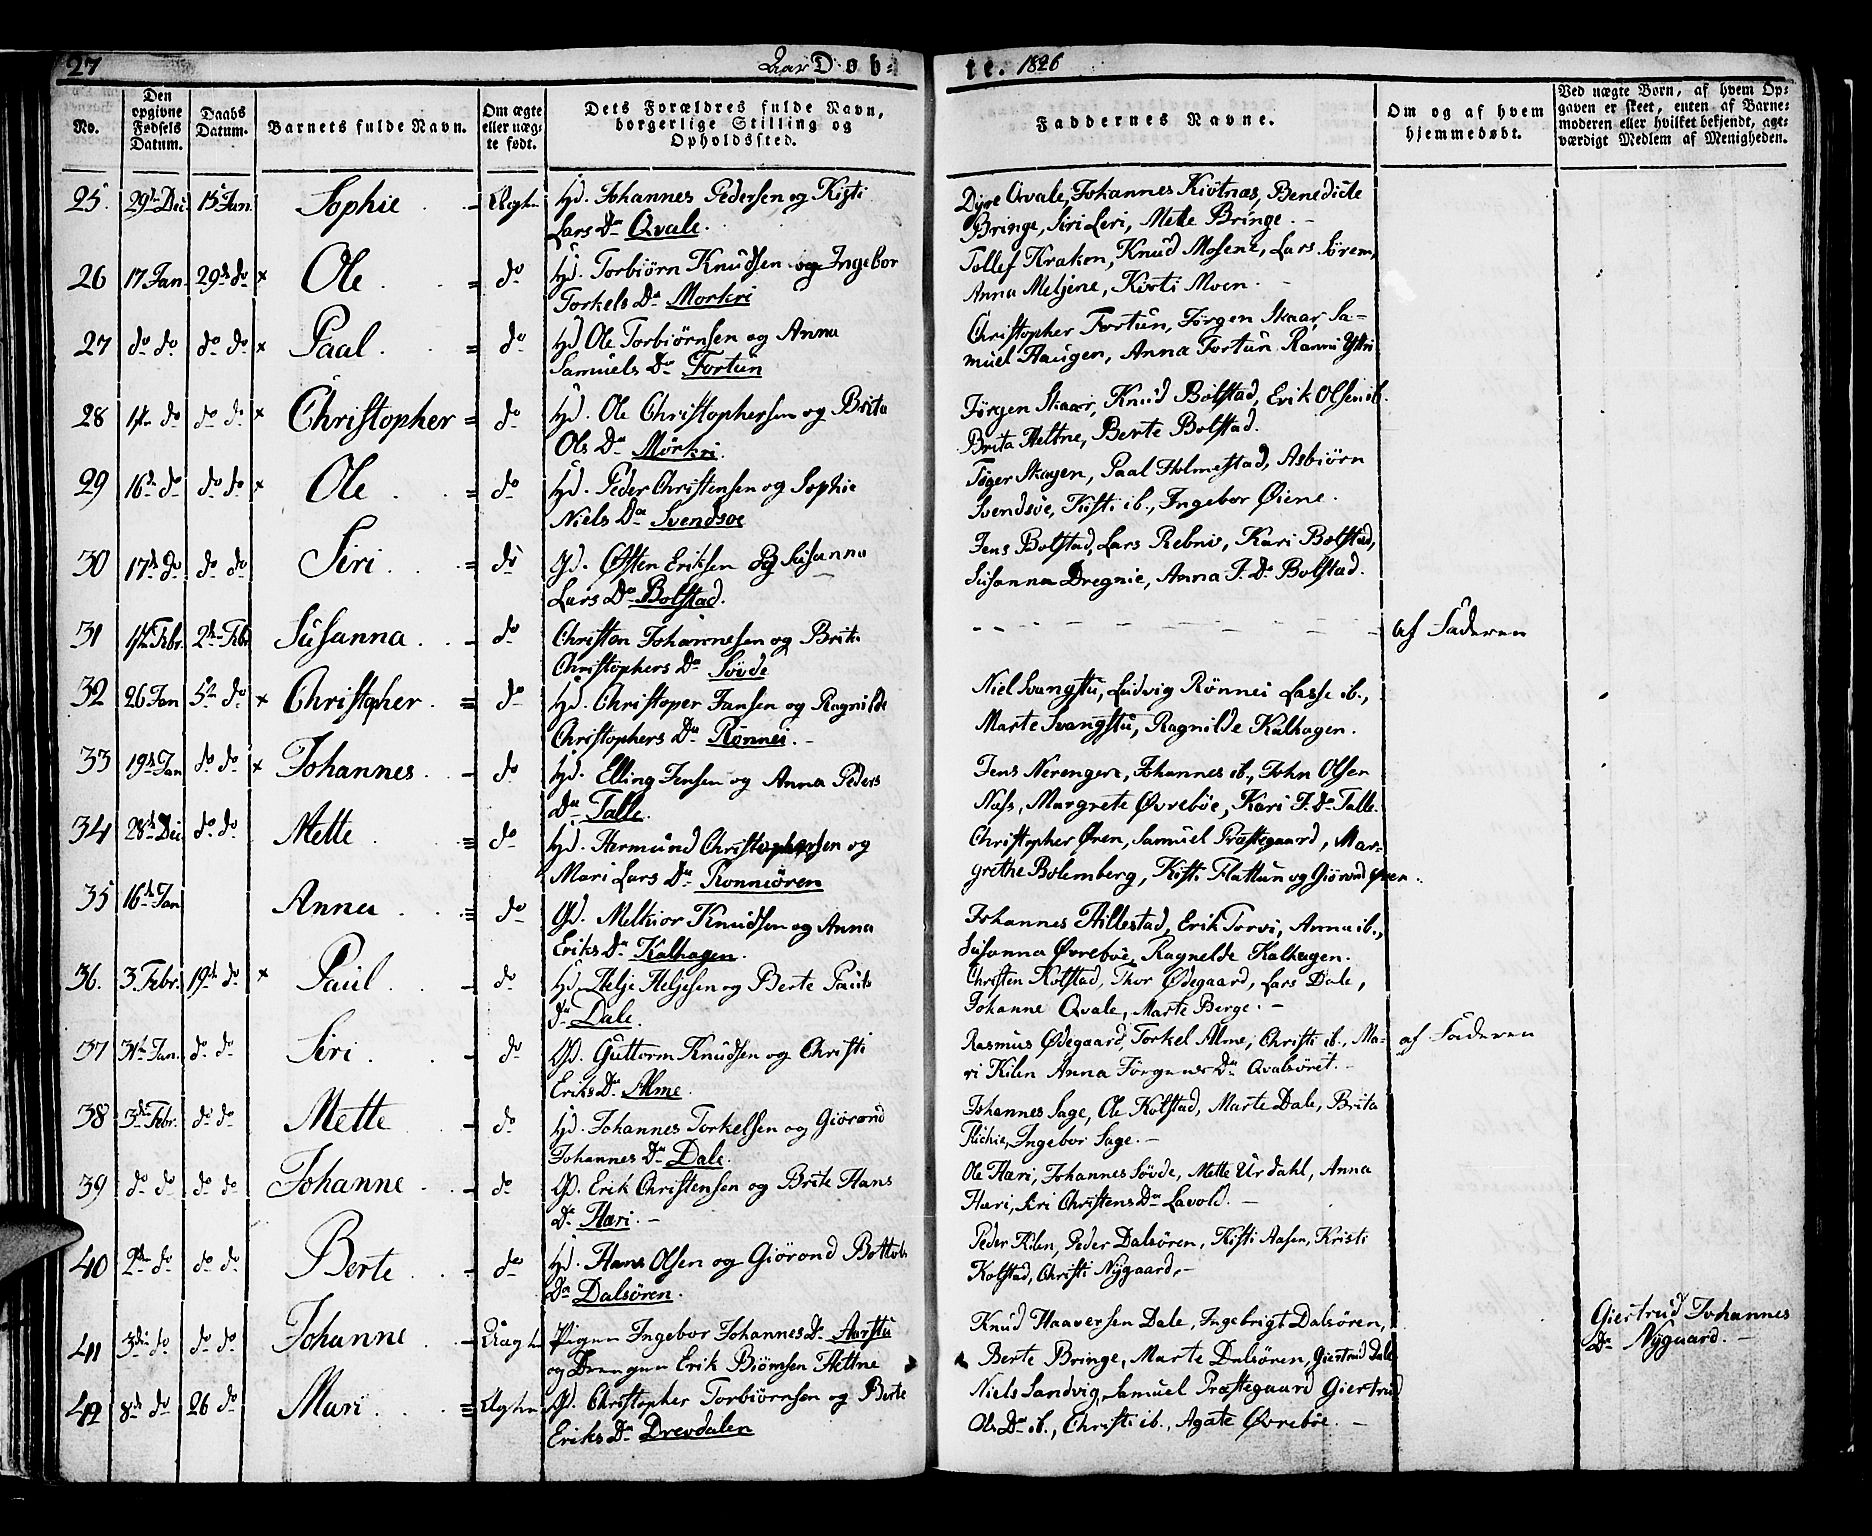 27 Aar Døb- te. 1826
No. | Den opgivne Fødsels Datum. | Daabs Datum. | Barnets fulde Navn. | Om ægte eller uæg- te født. | Dets Forældres fulde Navn, borgerlige Stilling og Opholdssted. | Faddernes Navne. | Om og af hvem hjemmedøbt. | Ved uægte Børn, af hvem Op- gaven er skeet, enten af Barne- moderen eller hvilket bekjendt, age- værdigt Medlem af Menigheden.
25. 29de Dec. 15 Jan. Sophie Ægte Hd. Johannes Pedersen og Kisti
Lars Dr Qvale. Dyre Qvale, Johannes Kivtnæs, Benedicte
Bringe, Siri Leri, Mette Bringe.
26 17 Jan. 29de do x Ole do Hd. Torbiørn Knudsen og Ingebor
Torkels Dr Morkri Tollef Kroken, Knud Mosene, Lars Sørem,
Anna Meljene, Kirsti Moen.
27 do do do do x Paal do Hd Ole Torbiørnsen og Anna
Samuels Dr Fortun Christopher Fortun, Jørgen Skaar, Sa-
muel Haugen, Anna Fortun Ranni Yttri
28 14 do do do x Christopher do Hd. Ole Christophersen og Brita
Ols Dr Mørkri. Jørgen Skaar, Knud Bolstad, Erik Olsen ib.
Brita Heltne, Berte Bolstad.
29 16de do do do x Ole do Hd. Peder Christensen og Sophie
Niels Dr Svendsøe Tøger Skagen, Paal Holmestad, Asbiørn
Svendsøe, Kisti ib., Ingebor Øiene.
30 17de do do do Siri do Gd. Østen Eriksen og Susanna
Lars Dr Bolstad. Jens Bolstad, Lars Rebni, Kari Bolstad,
Susanna Dregnie, Anna J. Dr Bolstad.
31 1ste Febr. 2den Febr Susanna do Christen Johannesen og Brite
Christophers Dr Søvde af Faderen
32 26 Jan 5te do x Christopher do Hd. Christoper Jansen og Ragnilde
Christophers Dr Rønnei. Niel Svangstu, Ludvig Rønnei Lasse ib.,
Marte Svangstu, Ragnilde Kalhagen.
33 19de Jan do do x Johannes do Hd. Elling Jensen og Anna Peders
Dr Talle. Jens Nerengen, Johannes ib., John Olsen
Næss, Margrete Øvrebøe, Kari J. Dr Talle.
34 28de Dec do do Mette do Hd. Hermund Christophersen og
Mari Lars Dr Rønneiøren Christopher Øren, Samuel Præstegaard, Mar-
grethe Bolemberg, Kisti Flattun og Giørond Øren.
35 16de Jan Anna do Gd. Melkior Knudsen og Anna
Eriks Dr Kalhagen. Johannes Hillestad, Erik Torvi, Anna ib.,
Susanna Øvrebøe, Ragnelde Kalhagen.
36. 3. Febr. 19de do x Paul do Hd. Helje Heljesen og Berte Pauls
Dr Dale. Christen Kolstad, Thor Ødegaard, Lars Dale,
Johanne Qvale, Marte Berge.
37 31te Jan. do do Siri do Gd. Guttorm Knudsen og Christi
Eriks Dr Alme. Rasmus Ødegaard, Torkel Alme, Christi ib., Ma-
ri Kilen Anna Jørgens Dr Qvalsøret. af Faderen
38 3die Febr. do do Mette do Hd. Johannes Torkelsen og Giørond
Johannes Dr Dale. Johannes Sage, Ole Kolstad, Marte Dale, Brita
Flichie, Ingebor Sage.
39 do do do do Johanne do Gd. Erik Christensen og Brite Hans
Dr Hæri. Ole Hæri, Johannes Søvde, Mette Urdahl, Anna
Hæri, Siri Christens Dr Lavold.
40 2den do do do Berte do Hd. Hans Olsen og Giørond Bottols
Dr Dalsøren. Peder Kilen, Peder Dalsøren, Kisti Aasen, Kristi
Kolstad, Christi Nygaard,
41 3die do do do Johanne Uægte Pigen Ingebor Johannes Dr Aarstu
og Drengen Erik Biørnsen Heltne Knud Haaversen Dale, Ingebrigt Dalsøren,
Berte Bringe, Marte Dalsøren, Giertrud Dale Giertrud Johannes
Dr Nygaard.
42 8de do 26 do Mari Ægte Gd. Christopher Torbiørnsen og Berte
Eriks Dr Drevdalen Niels Sandvig, Samuel Præstegaard Giertrud
Ols Dr ib., Christi ib., Agate Øvrebøe.